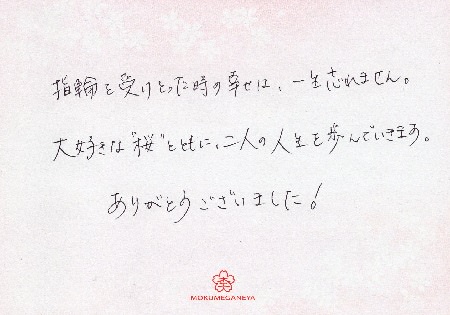 指輪を受けとった時の幸せは、一生忘れません。
大好きな"桜"とともに、二人の人生を歩んでいきます。
ありがとうございました!
MOKUMEGANEYA